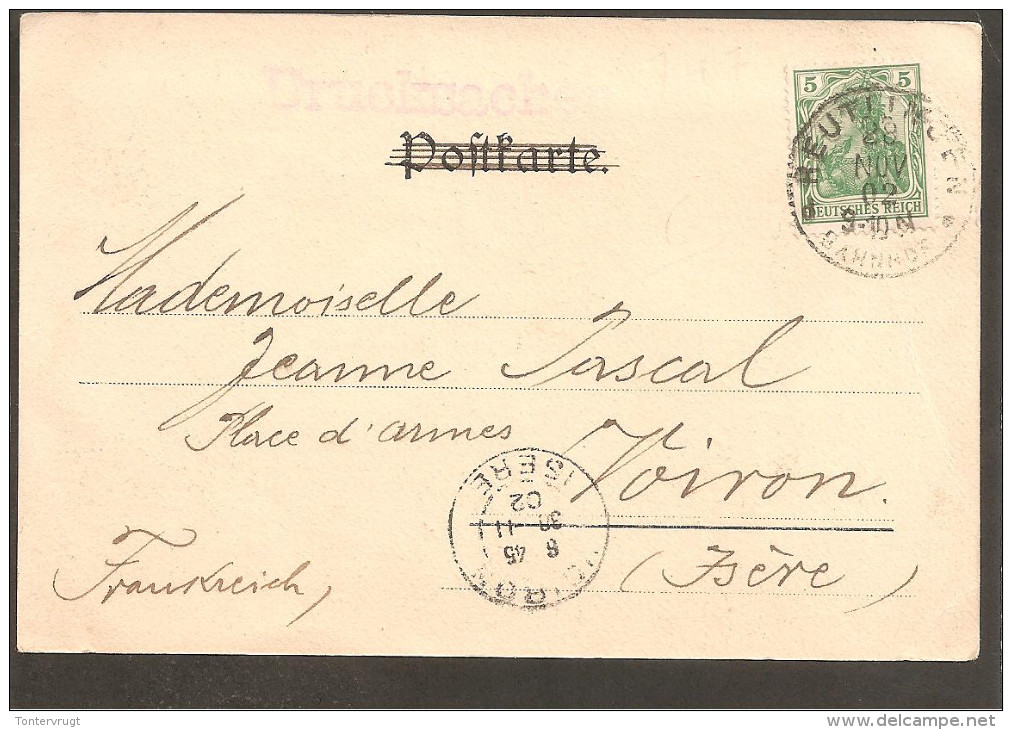 Drucksache
Postkarte.
5 5
DEUTSCHES REICH
REUTLINGEN
NOV
02
9-10 N
BAHNHOF
Mademoiselle
Jeanne Pascal
Place d'armes Voiron.
(Isère)
Frankreich,
VOIRON
ISERE
6 45
30 -11
02
Tontervrugt
www.delcampe.net